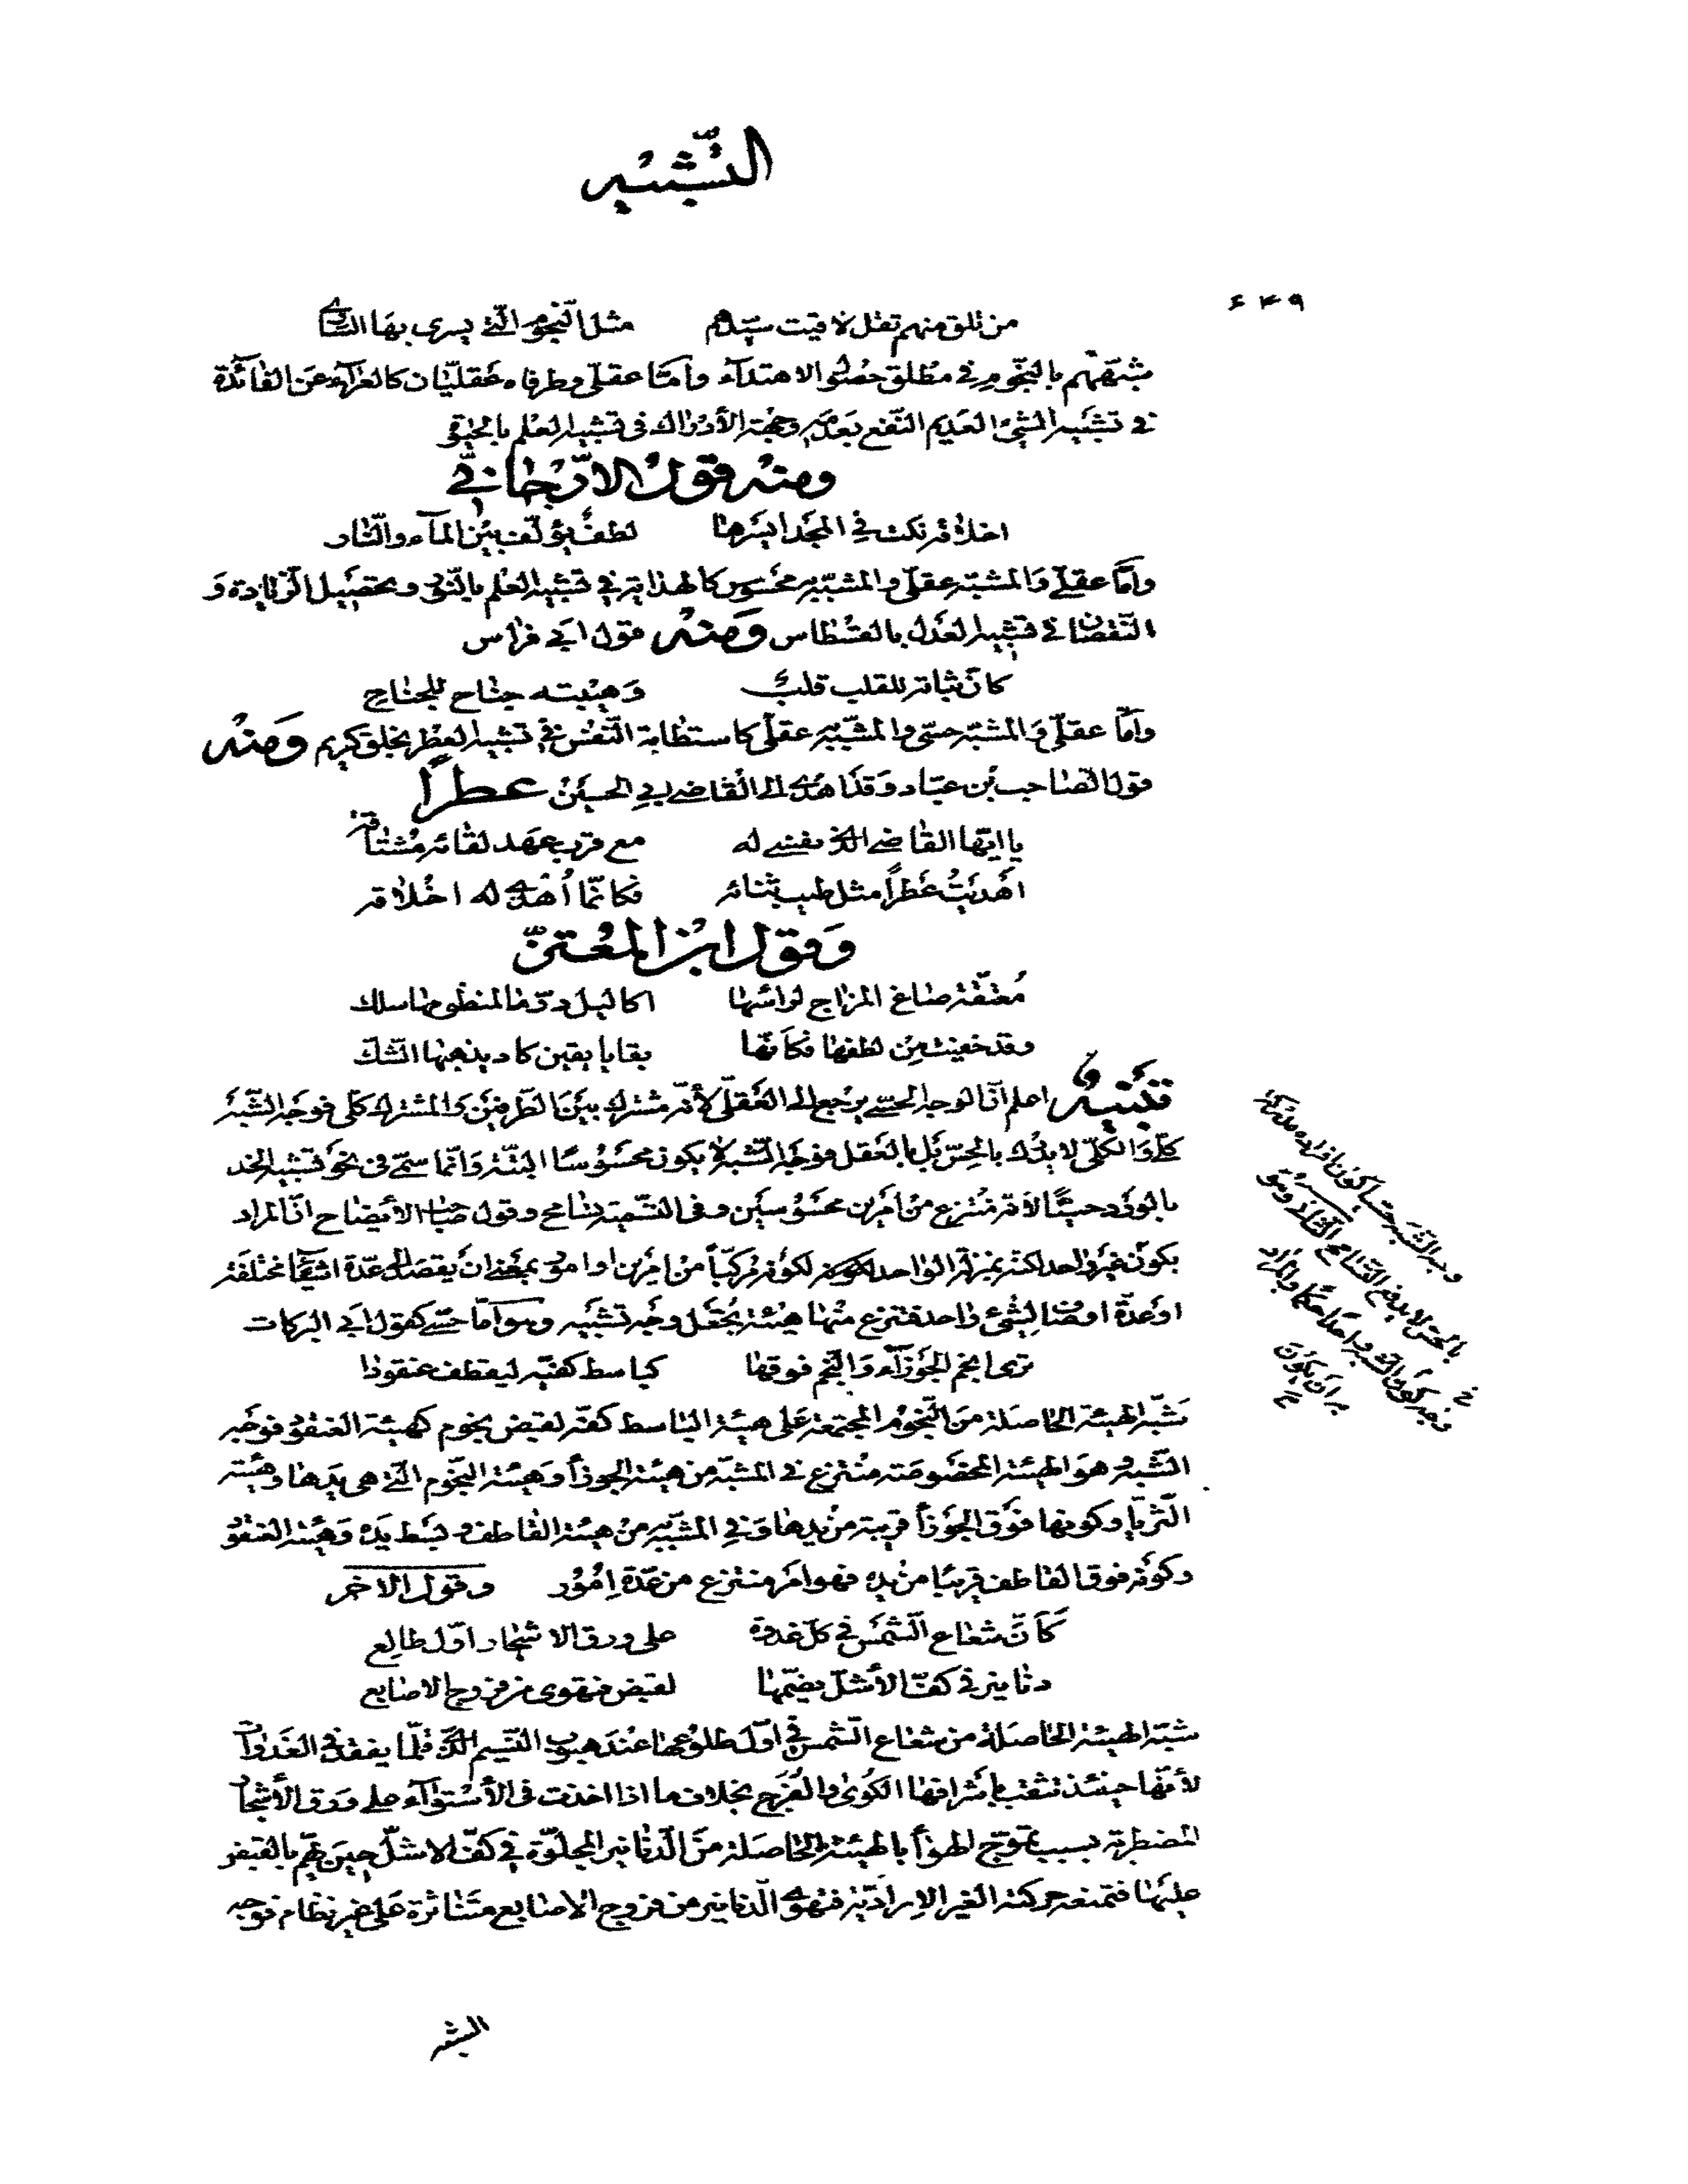 التشبيه
٦٤٩
من تلق منهم تقل لاقيت سيدهم مثل النجوم التي يسرى بها الساري
شبههم بالنجوم في مطلق حصول الاهتداء واما عقلي وطرفاه عقليان كالعراء عن الفائدة
في تشبيه الشيء العديم النفع بعدمه وجهة الأدراك في تشبيه العلم بالحيوة
ومنه قول الارجاني
اخلاقه نكت في المجد ايسرها لطف يؤلف بين الماء والنار
واما عقلي والمشبه عقلي والمشبه به محسوس كالهداية في تشبيه العلم بالنور وتحصيل الزيادة و
النقصان في تشبيه العدل بالقسطاس ومنه قول ابي فراس
كان ثباته للقلب قلب وهيبته جناح للجناح
واما عقلي والمشبه حسي والمشبه به عقلي كاستطابة النفس في تشبيه العطر بخلق كريم ومنه
قول الصاحب بن عباد وقد اهدى الى القاضي ابي الحسين عطرا
يا ايها القاضي الذي نفسي له مع قرب عهد لقائه مشتاقه
اهديت عطرا مثل طيب ثنائه فكانما اهدى له اخلاقه
وقول ابن المعتز
معتقة صاغ المزاج لراسها اكاليل در ما لمنظومها سلك
وقد خفيت من لطفها فكانها بقايا يقين كاد يذهبها الشك
تنبيه اعلم ان الوجه الحسي يرجع الى العقلي لأنه مشترك بين الطرفين والمشترك كلي فوجه الشبه
كلي والكلي لا يدرك بالحس بل بالعقل فوجه الشبه لا يكون محسوسا البتة وانما سمي في نحو تشبيه الخد
بالورد حسيا لانه منتزع من امرين محسوسين وفي التسمية تسامح وقول صاحب الأيضاح ان المراد
بكون غير واحد لكنه بمنزلة الواحد لكونه مركبا من امرين او امور بمعنى ان يقصد الى عدة اشياء مختلفة
او عدة اوصاف لشيء واحد فتنتزع منها هيئة يجعل وجه تشبيه وهو اما حسي كقول ابي البركات
ترى انجم الجوزاء والنجم فوقها كباسط كفيه ليقطف عنقودا
شبه الهيئة الحاصلة من النجوم المجتمعة على هيئة الباسط كفه لقبض نجوم كهيئة العنقود فوجه
الشبه وهو الهيئة المخصوصة منتزع في المشبه من هيئة الجوزاء وهيئة النجوم التي هي يدها وهيئة
الثريا وكونها فوق الجوزاء قريبة من يدها وفي المشبه به من هيئة القاطف وبسط يده وهيئة العنقود
وكونه فوق القاطف قريبا من يده فهو امر منتزع من عدة امور وقول الاخر
كأن شعاع الشمس في كل غدوة على ورق الاشجار اول طالع
دنانير في كف الأشل يضمها لقبض فتهوى من فروج الاصابع
شبه الهيئة الحاصلة من شعاع الشمس في اول طلوعها عند هبوب النسيم الذي قلما يفقد في الغدوات
لأنها حينئذ تثقب باشراقها الكوى والفرج بخلاف ما اذا اخذت في الأستواء على ورق الأشجار
المضطربة بسبب تموج الهواء بالهيئة الحاصلة من الدنانير المجلوة في كف الاشل حين يهم بالقبض
عليها فتمنعه حركته الغير الارادية فتهوى الدنانير من فروج الاصابع متناثرة على غير نظام فوجه
وجه الشبه حسيا كون افراده مدركة
بالحس لا يدفع التسامح
الشبه